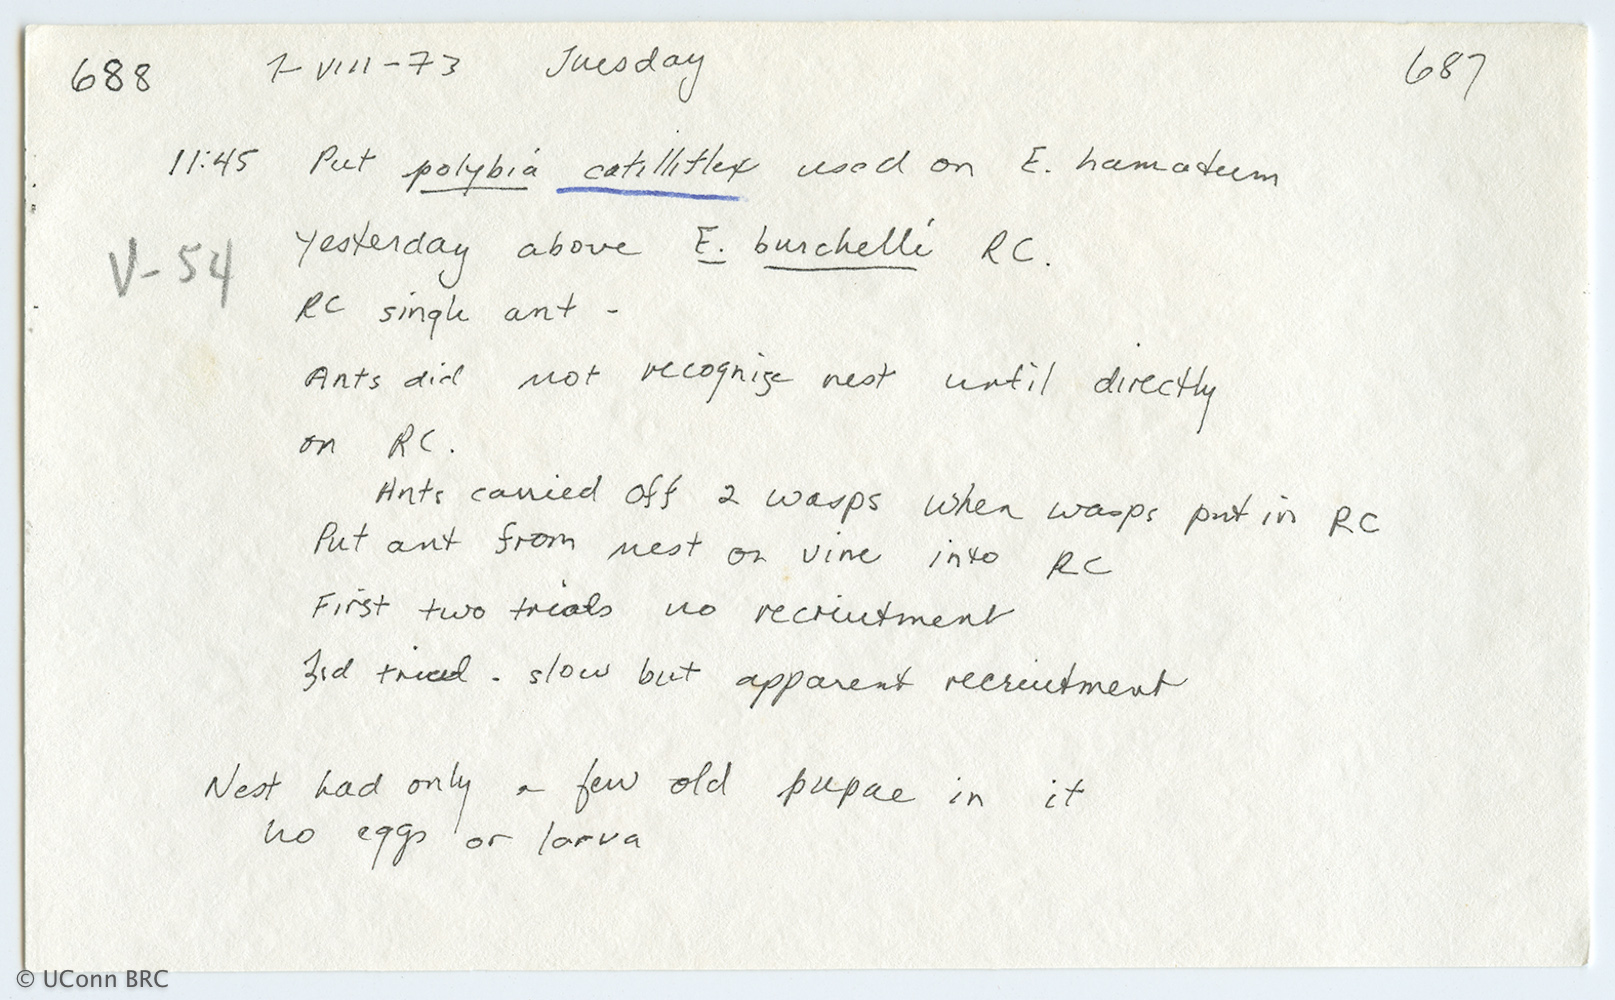 688 7-VIII-73 Tuesday 687
11:45 Put polybia catilliflex used on E. hamatum
V-54 yesterday above E. burchelli RC.
RC single ant -
Ants did not recognize nest until directly
on RC.
Ants carried off 2 wasps when wasps put in RC
Put ant from nest on vine into RC
First two trials no recriutment
3rd trial - slow but apparent recriutment
Nest had only a few old pupae in it
no eggs or larva
© UConn BRC